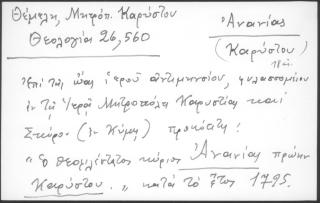 Θέμελη, Μητροπ. Καρύστου
Θεολογία 26, 560
Ἀνανίας
(Καρύστου)
18 αἰ.
Ἐπὶ τῆς ἱεροῦ ἀντιμηνσίου, φυλασσομένου
ἐν τῇ Ἱερᾷ Μητροπόλει Καρυστίας καὶ
Σκύρου (ἐν Κύμῃ)
"ὁ θεοφιλέστατος κύριος Ἀνανίας πρώην
Καρύστου." κατὰ τὸ ἔτος 1795.